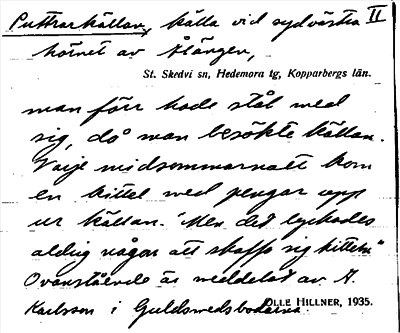 Puttrarkällan, källa vid sydvästra II
hörnet av Älängen,
St. Skedvi sn, Hedemora tg, Kopparbergs län.
man förr hade stål med
sig, då man besökte källan.
Varje midsommarnatt kom
en kittel med pengar upp
ur källan. "Men det lyckades
aldrig någon att skaffa sig kitteln"
Ovanstående är meddelat av A.
Karlsson i Guldsmedsbodarna
OLLE HILLNER, 1935.